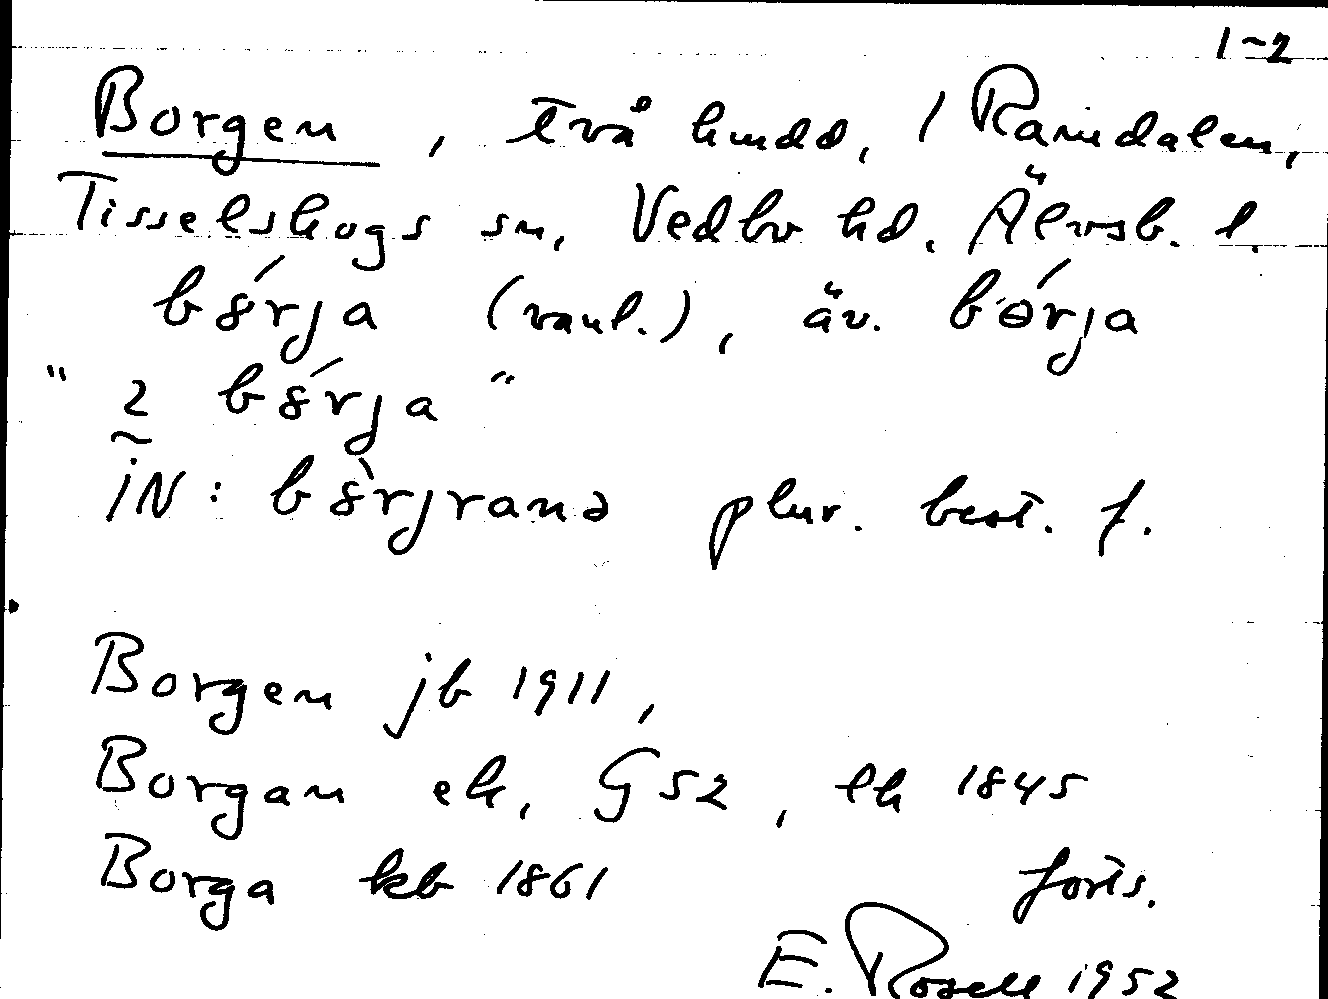 1-2
Borgen, två hmdd, / Ramdalen,
Tisselskogs sn, Vedbo hd. Älvsb. l.
b8́rja (vanl.), äv. bórja
" 2 b8́rja "
iN: b8̀rjranə plur. best. f.
Borgen jb 1911,
Borgan ek, G 52, lk 1845
Borga kb 1861 forts.
E. Rosell 1952